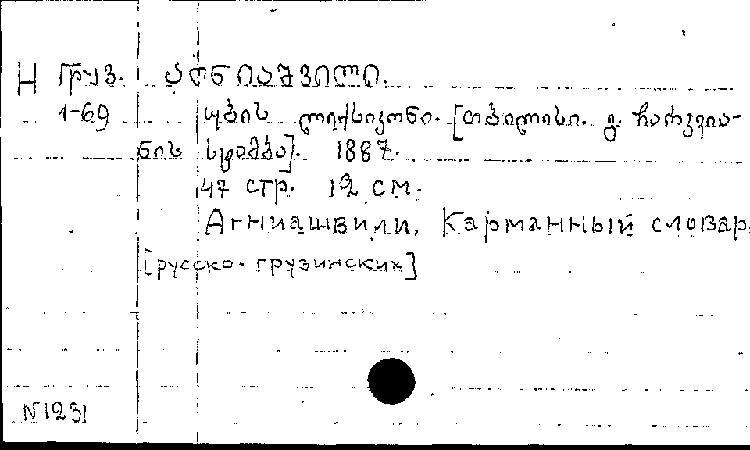 Н Груз. აღნიაშვილი.
1-69 ჯბის ლექსიკონი. [თბილისი. გ. ჩარკვია-
ნის სტამბა]. 1887.
47 стр. 12 см.
Агниашвили, Карманный словар
[русско-грузинских]
N 1231